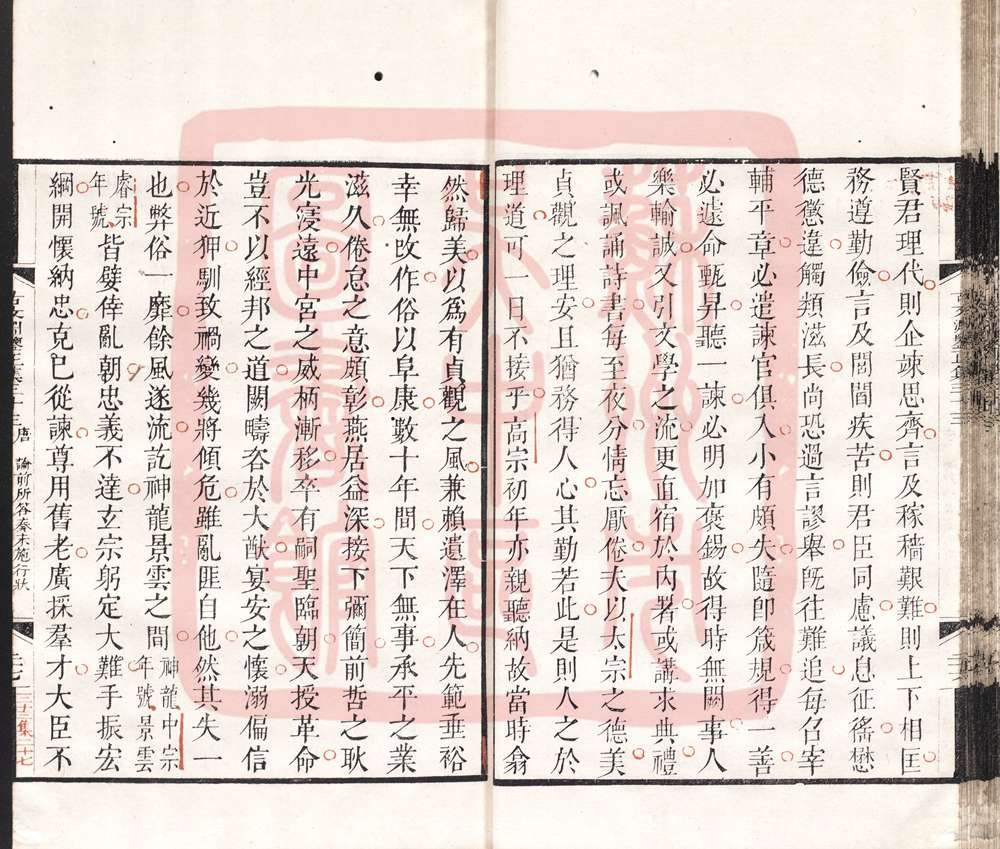 賢君理代則企竦思齊言及稼穡艱難則上下相匡
務遵勤儉言及閭閻疾苦則君臣同慮議息征徭懋
德懲違觸類滋長尚恐過言謬舉旣往難追每召宰
輔平章必遣諫官俱入小有頗失隨卽箴規得一善
必遽命甄昇聽一諫必明加褒錫故得時無闕事人
樂輸誠又引文學之流更直宿於內署或講求典禮
或諷誦詩書每至夜分情忘厭倦夫以太宗之德美
貞觀之理安且猶務得人心其勤若此是則人之於
理道可一日不接乎高宗初年亦親聽納故當時翕
然歸美以爲有貞觀之風兼賴遺澤在人先範垂裕
幸無改作俗以阜康數十年間天下無事承平之業
滋久倦怠之意頗彰燕居益深接下彌簡前哲之耿
光寖遠中宮之威柄漸移卒有嗣聖臨朝天授革命
豈不以經邦之道闕疇咨於大猷宴安之懷溺偏信
於近狎馴致禍變幾將傾危雖亂匪自他然其失一
也弊俗一靡餘風遂流訖神龍景雲之間神龍中宗年號景雲
睿宗年號皆嬖倖亂朝忠義不達玄宗躬定大難手振宏
綱開懷納忠克已從諫尊用舊老廣採羣才大臣不
唐 論前所答奏未施行狀